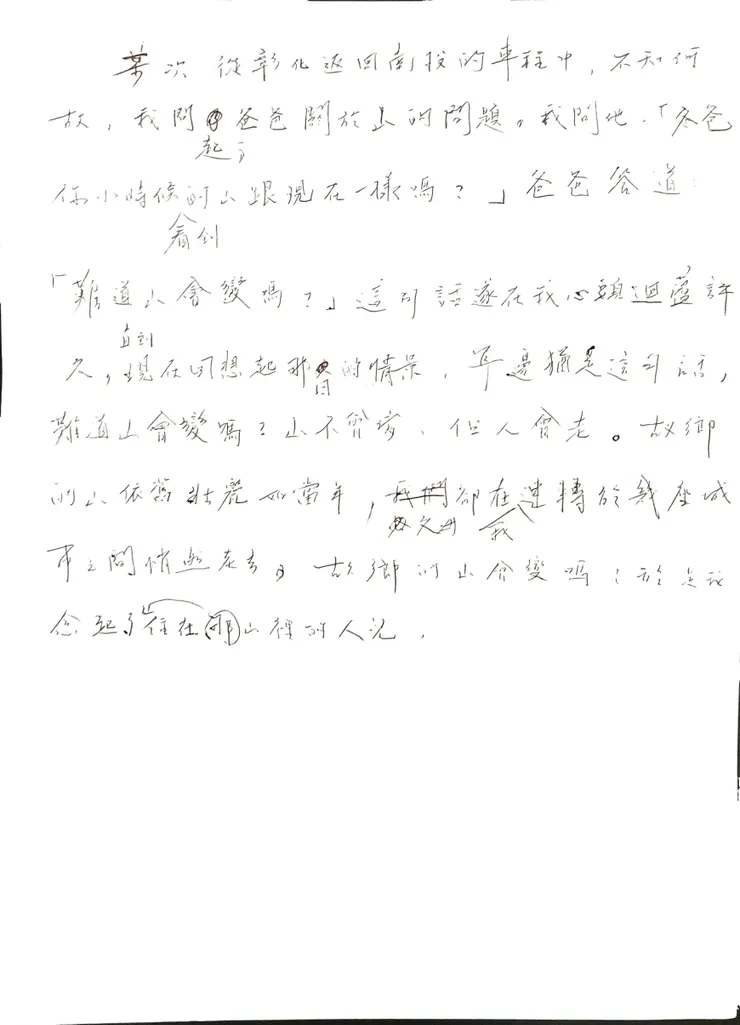 某次從彰化返回南投的車程中，不知何
故，我問起了爸爸關於山的問題。我問他：「爸爸
你小時候看到的山跟現在一樣嗎？」爸爸答道：
「難道山會變嗎？」這句話遂在我心頭迴盪許
久，直到現在回想起那日的情景，耳邊猶是這句話，
難道山會變嗎？山不曾變，但人會老。故鄉
的山依舊壯麗如當年，父母卻在我連轉於幾座城
市之間悄然老去。故鄉的山會變嗎？於是我
念起了那住在山裡的人兒。